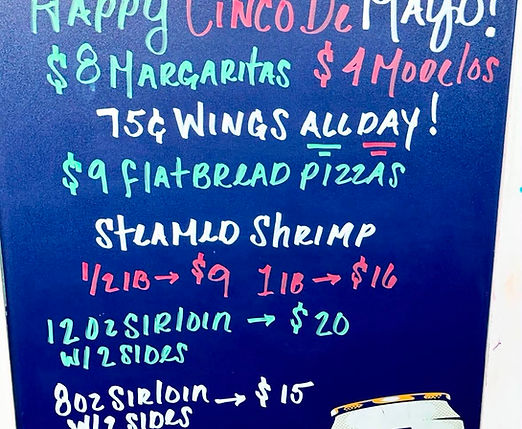 HAPPY CINCO De MAYO!
$8 MARGARITAS $4 MODELOS
75¢ WINGS ALL DAY!
$9 FLATBREAD PIZZAS
STEAMED SHRIMP
1/2 lB → $9 1 lB → $16
12 OZ SIRLOIN → $20
W/ 2 SIDES
8OZ SIRLOIN → $15
W/ 2 SIDES